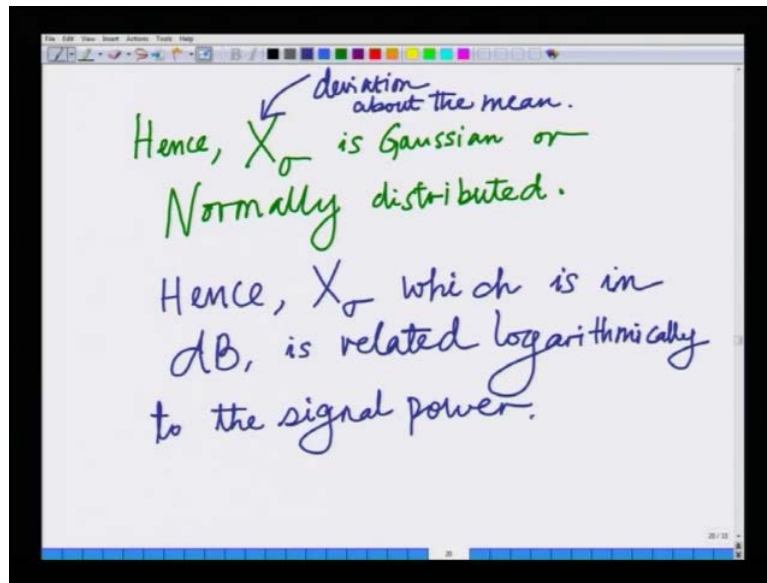 File Edit View Insert Actions Tools Help
deviation
about the mean.
Hence, Xσ is Gaussian or
Normally distributed.
Hence, Xσ which is in
dB, is related logarithmically
to the signal power.
20